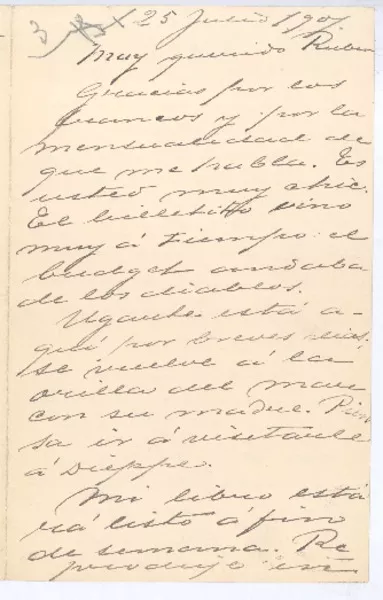 25 Julio 1901
Muy querido Rubén
Gracias por los
francos y por la
mensualidad de
que me habla. Es
usted muy chic.
El billetito vino
muy á tiempo: el
budget andaba
de los diablos.
Ugarte está a-
quí por breves dias;
se vuelve á la
orilla del mar
con su madre. Pien
sa ir á visitarle
á Dieppe.
Mi libro esta
rá listo á fin
de semana. Re
produje